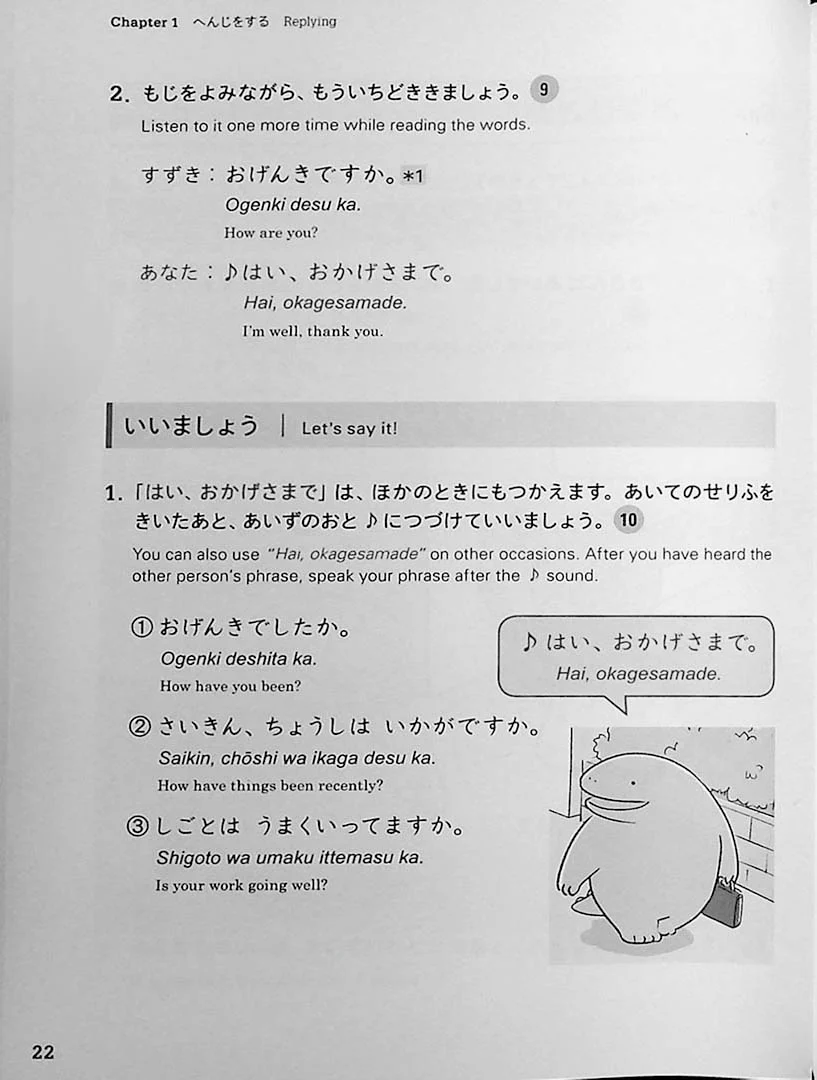 Chapter 1 へんじをする Replying
2. もじをよみながら、もういちどききましょう。 9
Listen to it one more time while reading the words.
すずき：おげんきですか。*1
Ogenki desu ka.
How are you?
あなた：♪はい、おかげさまで。
Hai, okagesamade.
I'm well, thank you.
いいましょう | Let's say it!
1. 「はい、おかげさまで」は、ほかのときにもつかえます。あいてのせりふを
きいたあと、あいずのおと♪につづけていいましょう。 10
You can also use "Hai, okagesamade" on other occasions. After you have heard the
other person's phrase, speak your phrase after the ♪ sound.
① おげんきでしたか。
Ogenki deshita ka.
How have you been?
♪はい、おかげさまで。
Hai, okagesamade.
② さいきん、ちょうしは いかがですか。
Saikin, chōshi wa ikaga desu ka.
How have things been recently?
③ しごとは うまくいってますか。
Shigoto wa umaku ittemasu ka.
Is your work going well?
22